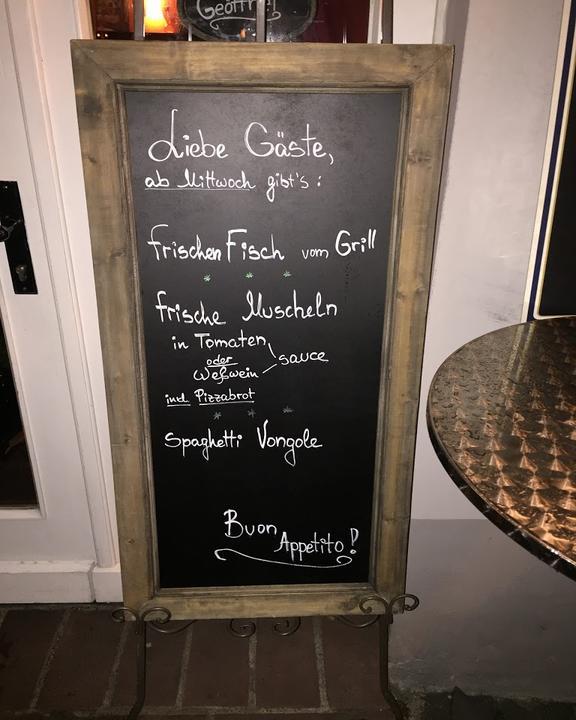 Geöffnet!
Liebe Gäste,
ab Mittwoch gibt's :
frischen Fisch vom Grill
frische Muscheln
in Tomaten
oder
Weßwein
sauce
incl. Pizzabrot
Spaghetti Vongole
Buon
Appetito!